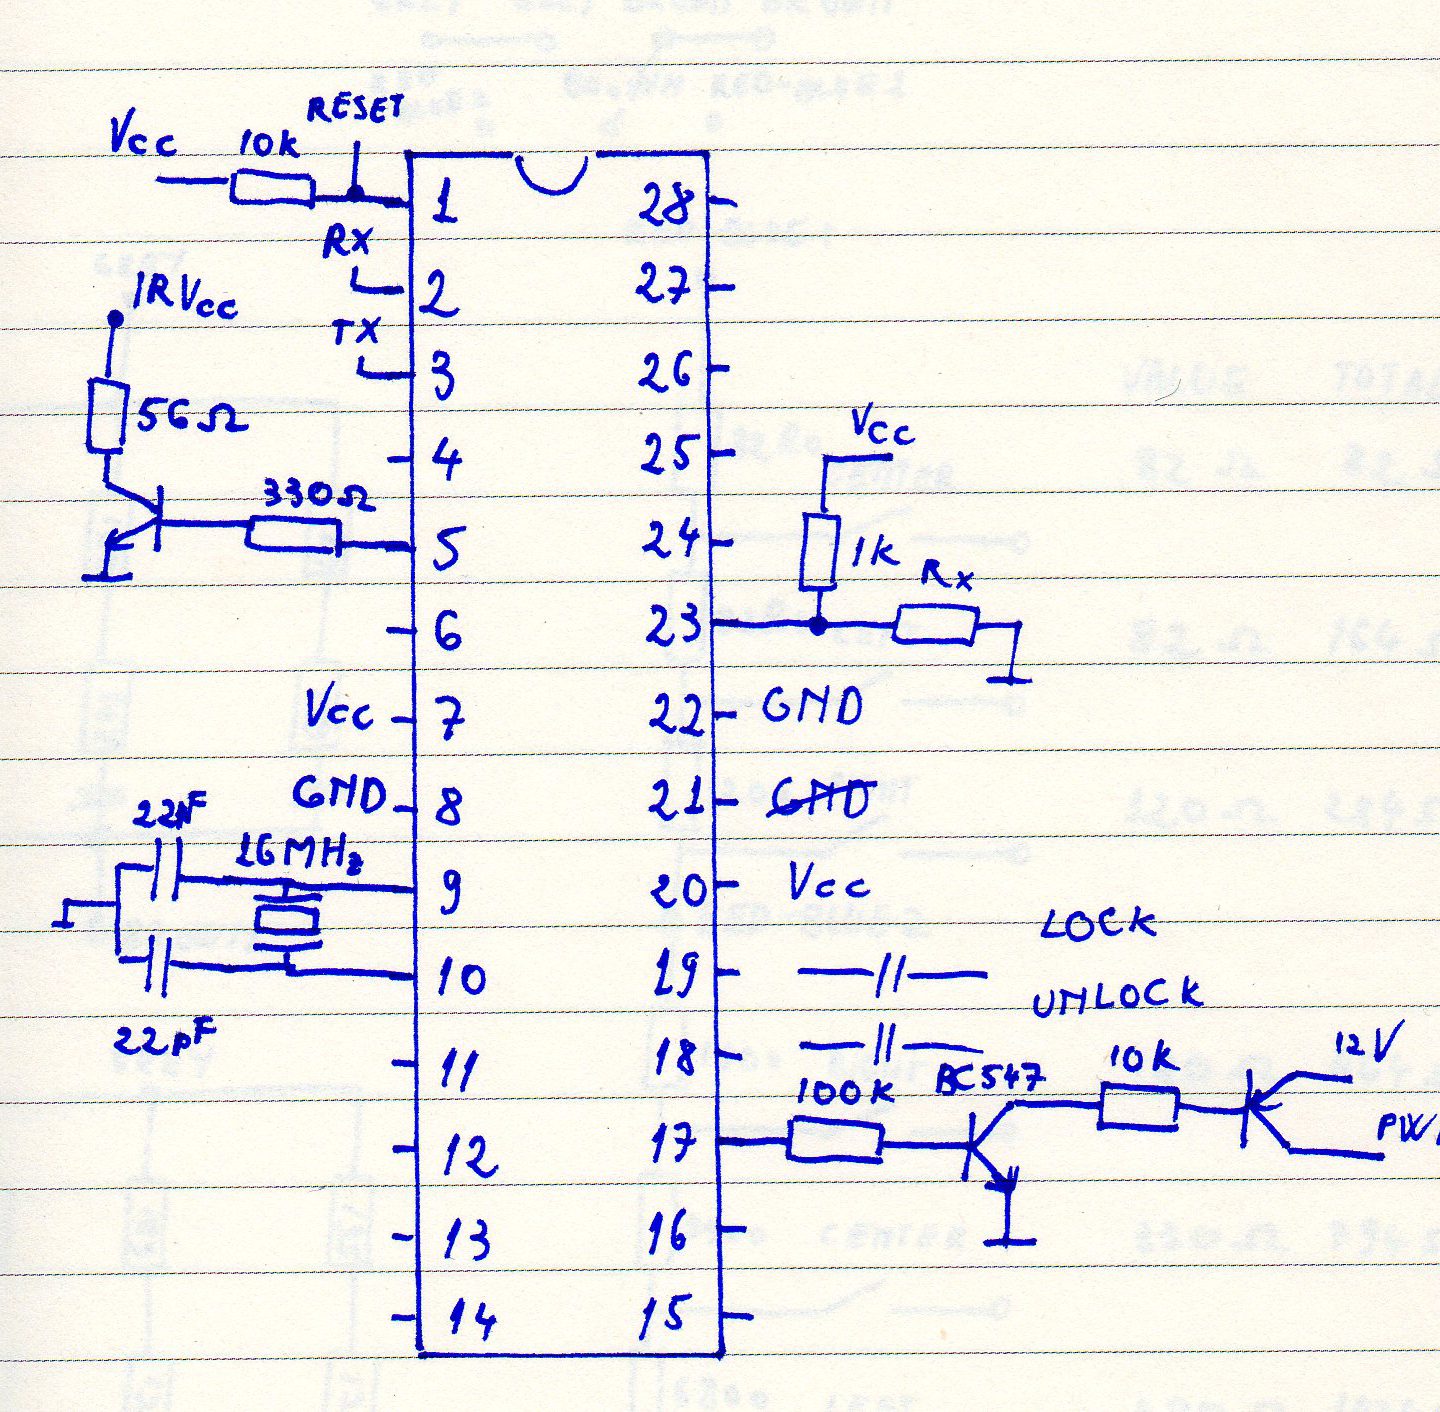 RESET
Vcc 10k
1 28
RX
2 27
IRVcc
TX
3 26
56Ω
Vcc
4 25
330Ω
5 24
1k
Rx
6 23
Vcc 7 22 GND
GND 8 21 GND
22pF
16MHz
9 20 Vcc
LOCK
10 19
UNLOCK
22pF
11 18
12V
100k BC547 10k
12 17
13 16
14 15